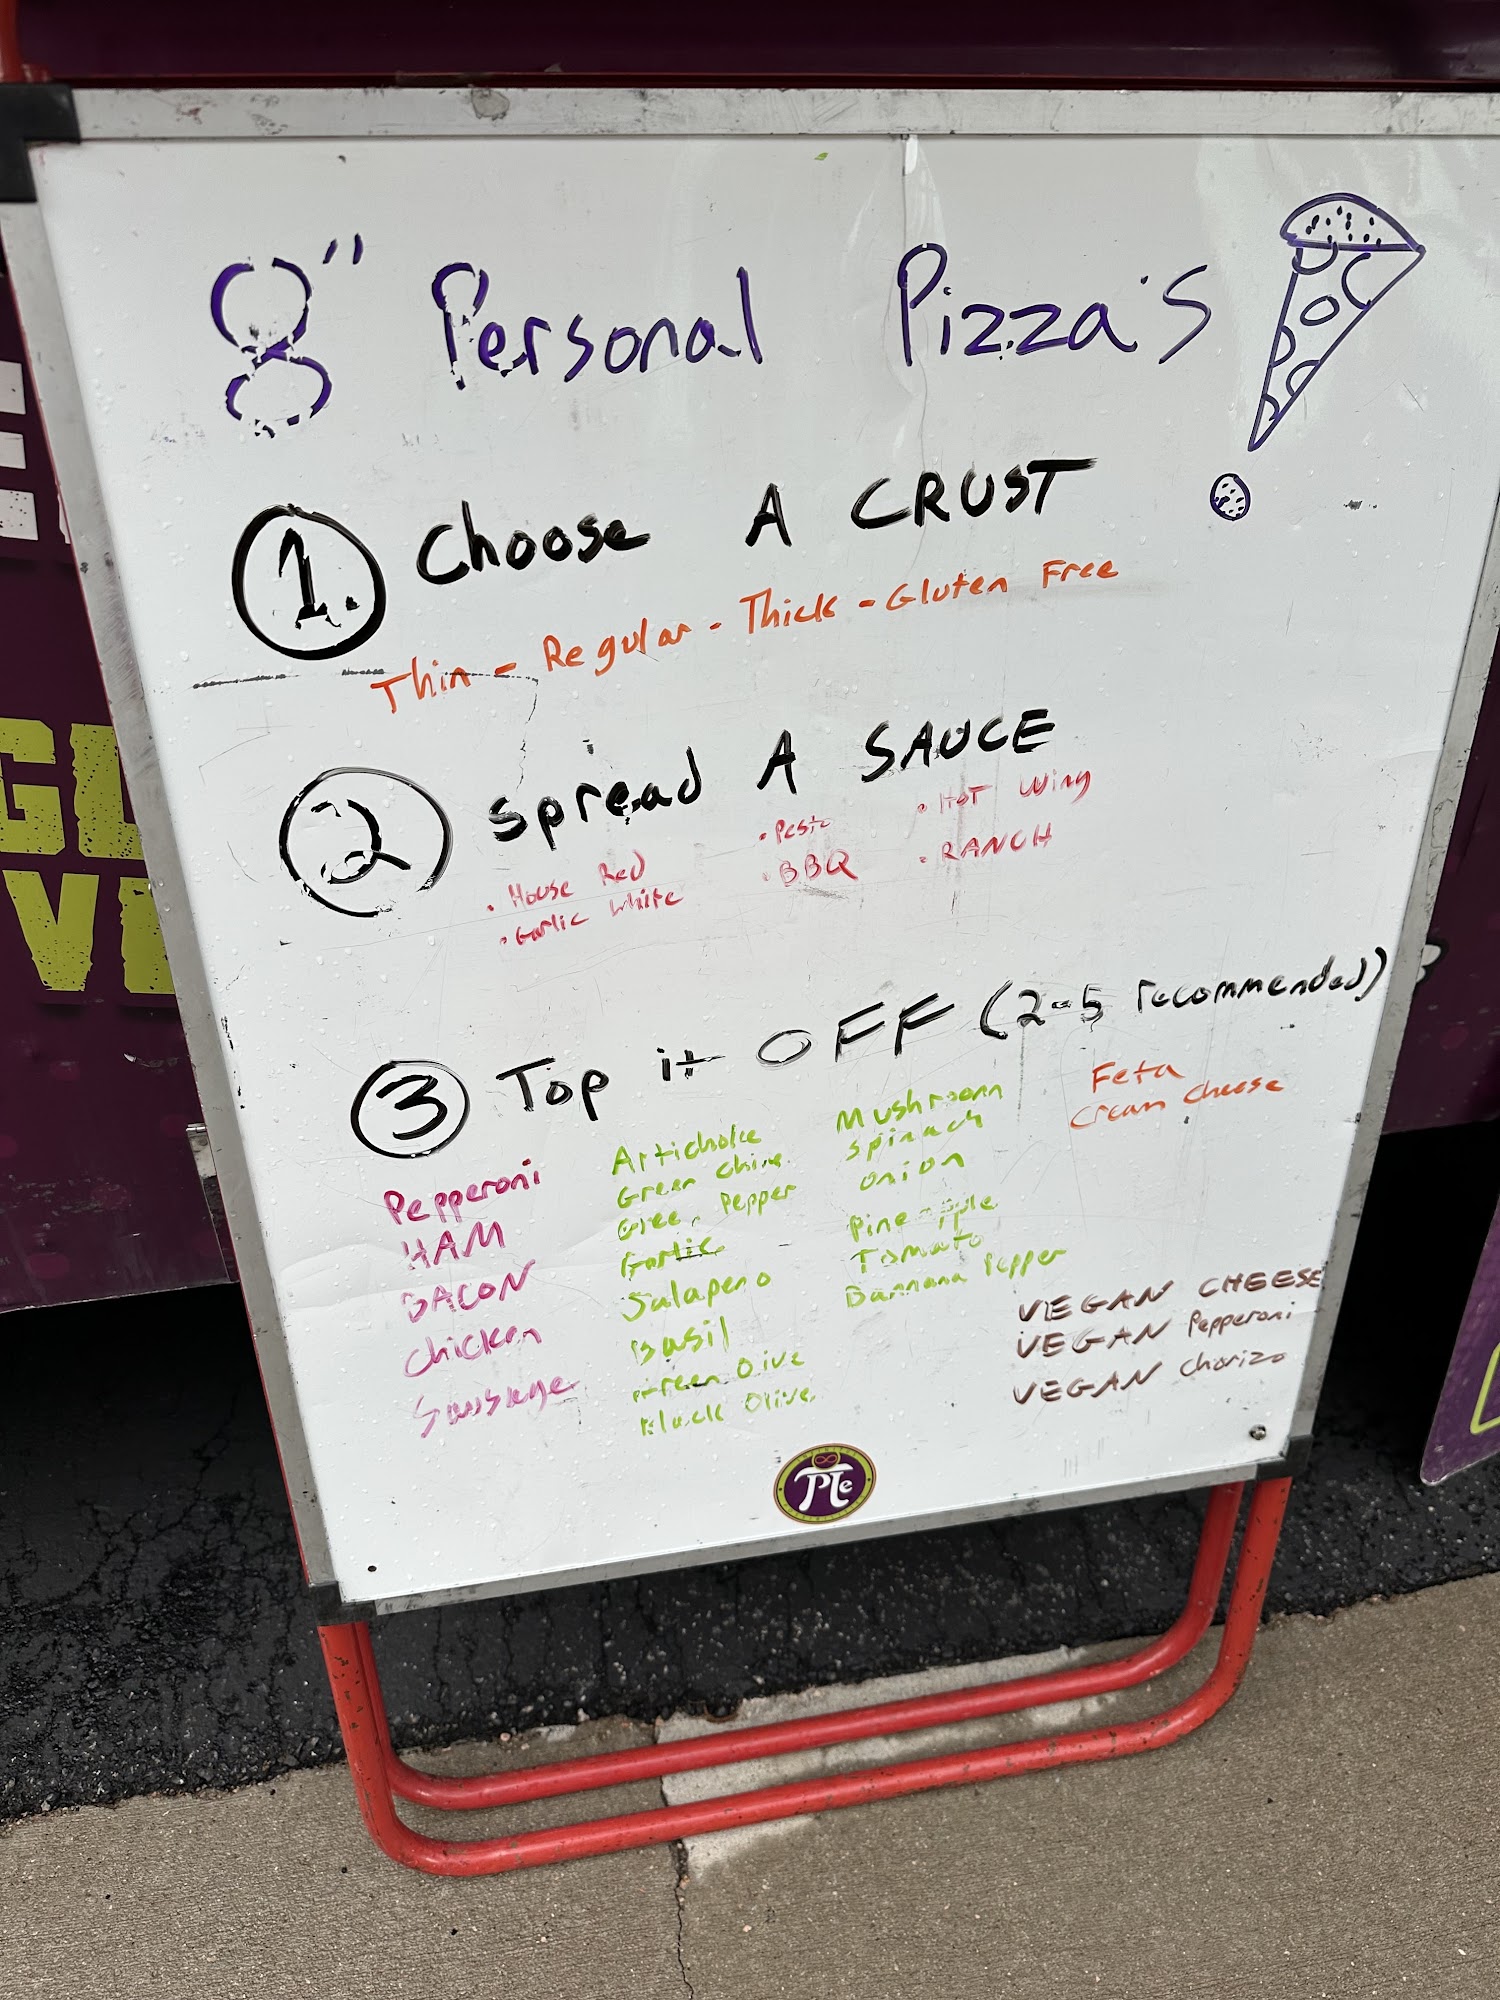 8" Personal Pizza's
1. Choose A CRUST
Thin - Regular - Thick - Gluten Free
2 spread A SAUCE
• House Red
• Garlic White
• Pesto
• BBQ
• HOT Wing
• RANCH
3 Top it OFF (2-5 recommended)
Pepperoni
HAM
BACON
chicken
Sausage
Artichoke
Green Chile
Green Pepper
Garlic
Jalapeno
Basil
Green Olive
Black Olive
Mushroom
spinach
onion
Pineapple
Tomato
Bannana Pepper
Feta
cream cheese
VEGAN CHEESE
VEGAN Pepperoni
VEGAN Chorizo
PIe